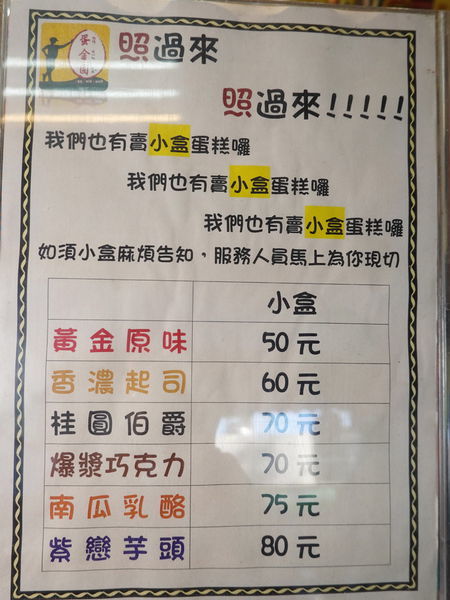 蛋金圓
照過來
照過來!!!!!
我們也有賣小盒蛋糕囉
我們也有賣小盒蛋糕囉
我們也有賣小盒蛋糕囉
如須小盒麻煩告知，服務人員馬上為你現切
小盒
黃金原味 50元
香濃起司 60元
桂圓伯爵 70元
爆漿巧克力 70元
南瓜乳酪 75元
紫戀芋頭 80元